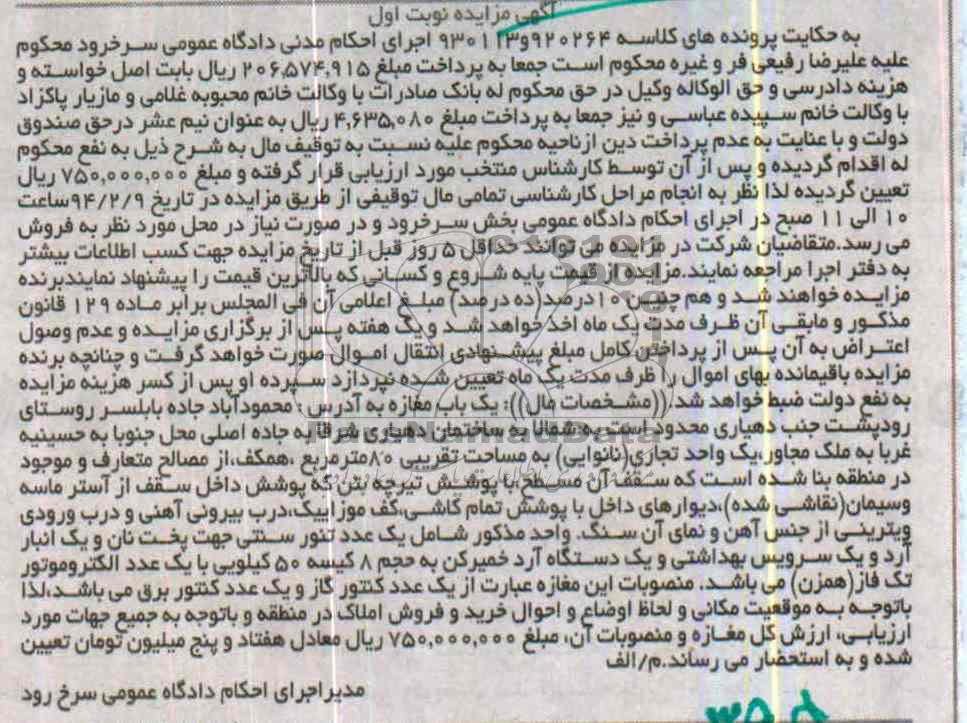 آگهی مزایده نوبت اول
به حکایت پرونده های کلاسه ۹۲۰۲۶۴و۹۳۰۱۱۳ اجرای احکام مدنی دادگاه عمومی سرخرود محکوم
علیه علیرضا رفیعی فر و غیره محکوم است جمعا به پرداخت مبلغ ۲۰۶,۵۷۴,۹۱۵ ریال بابت اصل خواسته و
هزینه دادرسی و حق الوکاله وکیل در حق محکوم له بانک صادرات با وکالت خانم محبوبه غلامی و مازیار پاکزاد
با وکالت خانم سپیده عباسی و نیز جمعا به پرداخت مبلغ ۴,۶۳۵,۰۸۰ ریال به عنوان نیم عشر درحق صندوق
دولت و با عنایت به عدم پرداخت دین ازناحیه محکوم علیه نسبت به توقیف مال به شرح ذیل به نفع محکوم
له اقدام گردیده و پس از آن توسط کارشناس منتخب مورد ارزیابی قرار گرفته و مبلغ ۷۵۰,۰۰۰,۰۰۰ ریال
تعیین گردیده لذا نظر به انجام مراحل کارشناسی تمامی مال توقیفی از طریق مزایده در تاریخ ۹۴/۲/۹ساعت
۱۰ الی ۱۱ صبح در اجرای احکام دادگاه عمومی بخش سرخرود و در صورت نیاز در محل مورد نظر به فروش
می رسد.متقاضیان شرکت در مزایده می توانند حداقل ۵ روز قبل از تاریخ مزایده جهت کسب اطلاعات بیشتر
به دفتر اجرا مراجعه نمایند.مزایده از قیمت پایه شروع و کسانی که بالاترین قیمت را پیشنهاد نمایندبرنده
مزایده خواهند شد و هم چنین ۱۰درصد(ده درصد) مبلغ اعلامی آن فی المجلس برابر ماده ۱۲۹ قانون
مذکور و مابقی آن ظرف مدت یک ماه اخذ خواهد شد و یک هفته پس از برگزاری مزایده و عدم وصول
اعتراض به آن پس از پرداختن کامل مبلغ پیشنهادی انتقال اموال صورت خواهد گرفت و چنانچه برنده
مزایده باقیمانده بهای اموال را ظرف مدت یک ماه تعیین شده نپردازد سپرده او پس از کسر هزینه مزایده
به نفع دولت ضبط خواهد شد.((مشخصات مال)): یک باب مغازه به آدرس : محمودآباد جاده بابلسر روستای
رودپشت جنب دهیاری محدود است به شمالا به ساختمان دهیاری شرقا به جاده اصلی محل جنوبا به حسینیه
غربا به ملک مجاور،یک واحد تجاری(نانوایی) به مساحت تقریبی ۸۰مترمربع ،همکف،از مصالح متعارف و موجود
در منطقه بنا شده است که سقف آن مسطح با پوشش تیرچه بتن که پوشش داخل سقف از آستر ماسه
وسیمان(نقاشی شده)،دیوارهای داخل با پوشش تمام کاشی،کف موزاییک،درب بیرونی آهنی و درب ورودی
ویترینی از جنس آهن و نمای آن سنگ. واحد مذکور شامل یک عدد تنور سنتی جهت پخت نان و یک انبار
آرد و یک سرویس بهداشتی و یک دستگاه آرد خمیرکن به حجم ۸ کیسه ۵۰ کیلویی با یک عدد الکتروموتور
تک فاز(همزن) می باشد. منصوبات این مغازه عبارت از یک عدد کنتور گاز و یک عدد کنتور برق می باشد،لذا
باتوجه به موقعیت مکانی و لحاظ اوضاع و احوال خرید و فروش املاک در منطقه و باتوجه به جمیع جهات مورد
ارزیابی، ارزش کل مغازه و منصوبات آن، مبلغ ۷۵۰,۰۰۰,۰۰۰ ریال معادل هفتاد و پنج میلیون تومان تعیین
شده و به استحضار می رساند.م/الف
مدیراجرای احکام دادگاه عمومی سرخ رود
ParsNamadData